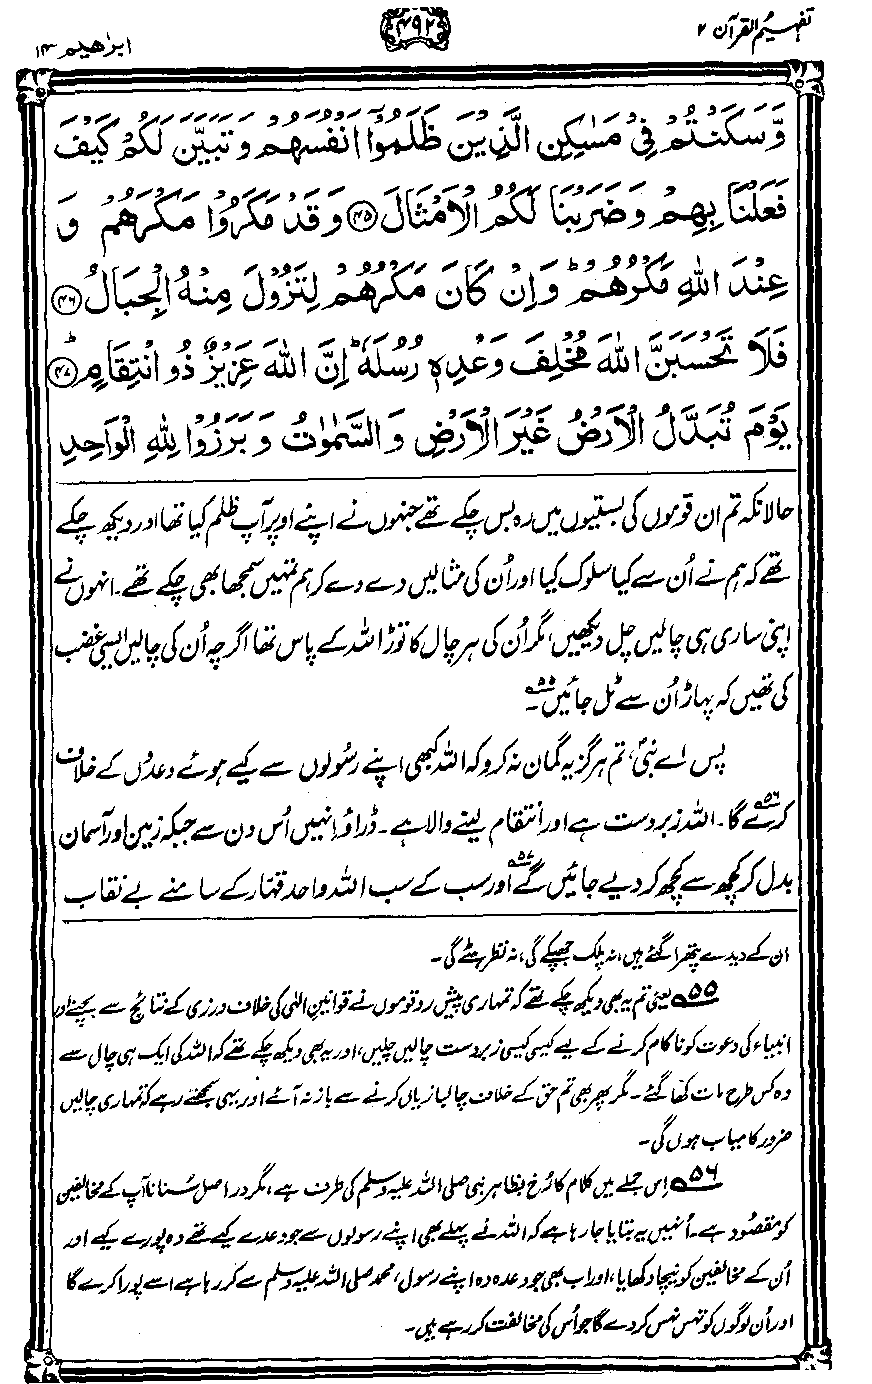 تفہیم القرآن ۲
۴۹۲
ابراھیم ۱۴
وَّسَكَنْتُمْ فِيْ مَسٰكِنِ الَّذِيْنَ ظَلَمُوْۤا اَنْفُسَهُمْ وَتَبَيَّنَ لَكُمْ كَيْفَ
فَعَلْنَا بِهِمْ وَضَرَبْنَا لَكُمُ الْاَمْثَالَ ﴿۴۵﴾ وَقَدْ مَكَرُوْا مَكْرَهُمْ وَ
عِنْدَ اللّٰهِ مَكْرُهُمْ ؕ وَاِنْ كَانَ مَكْرُهُمْ لِتَزُوْلَ مِنْهُ الْجِبَالُ ﴿۴۶﴾
فَلَا تَحْسَبَنَّ اللّٰهَ مُخْلِفَ وَعْدِهٖ رُسُلَهٗ ؕ اِنَّ اللّٰهَ عَزِيْزٌ ذُو انْتِقَامٍ ﴿۴۷﴾ؕ
يَوْمَ تُبَدَّلُ الْاَرْضُ غَيْرَ الْاَرْضِ وَالسَّمٰوٰتُ وَبَرَزُوْا لِلّٰهِ الْوَاحِدِ
حالانکہ تم ان قوموں کی بستیوں میں رہ بس چکے تھے جنہوں نے اپنے اوپر آپ ظلم کیا تھا اور دیکھ چکے
تھے کہ ہم نے اُن سے کیا سلوک کیا اور اُن کی مثالیں دے دے کر ہم تمہیں سمجھا بھی چکے تھے۔ انہوں نے
اپنی ساری ہی چالیں چل دیکھیں، مگر اُن کی ہر چال کا توڑ اللہ کے پاس تھا اگرچہ اُن کی چالیں ایسی غضب
کی تھیں کہ پہاڑ اُن سے ٹل جائیں۔۵۵
پس اے نبیؐ، تم ہرگز یہ گمان نہ کرو کہ اللہ کبھی اپنے رسُولوں سے کیے ہوئے وعدوں کے خلاف
کرے گا۔۵۶ اللہ زبردست ہے اور انتقام لینے والا ہے۔ ڈراؤ اِنہیں اُس دن سے جبکہ زمین اور آسمان
بدل کر کچھ سے کچھ کر دیے جائیں گے۵۷ اور سب کے سب اللہ واحد قہّار کے سامنے بے نقاب
ان کے دیدے پتھرا گئے ہیں، نہ پلک جھپکے گی، نہ نظر ہٹے گی۔
۵۵ یعنی تم یہ بھی دیکھ چکے تھے کہ تمہاری پیش رو قوموں نے قوانینِ الٰہی کی خلاف ورزی کے نتائج سے بچنے اور
انبیاء کی دعوت کو ناکام کرنے کے لیے کیسی کیسی زبردست چالیں چلیں، اور یہ بھی دیکھ چکے تھے کہ اللہ کی ایک ہی چال سے
وہ کس طرح مات کھا گئے۔ مگر پھر بھی تم حق کے خلاف چالبازیاں کرنے سے باز نہ آئے اور یہی سمجھتے رہے کہ تمہاری چالیں
ضرور کامیاب ہوں گی۔
۵۶ اِس جملے میں کلام کا رُخ بظاہر نبی صلی اللہ علیہ وسلم کی طرف ہے، مگر دراصل سُنانا آپ کے مخالفین
کو مقصُود ہے۔ اُنہیں یہ بتایا جا رہا ہے کہ اللہ نے پہلے بھی اپنے رسولوں سے جو وعدے کیے تھے وہ پورے کیے اور
اُن کے مخالفین کو نیچا دکھایا، اور اب بھی جو وعدہ وہ اپنے رسول، محمد صلی اللہ علیہ وسلم سے کر رہا ہے اسے پورا کرے گا
اور اُن لوگوں کو تہس نہس کر دے گا جو اُس کی مخالفت کر رہے ہیں۔